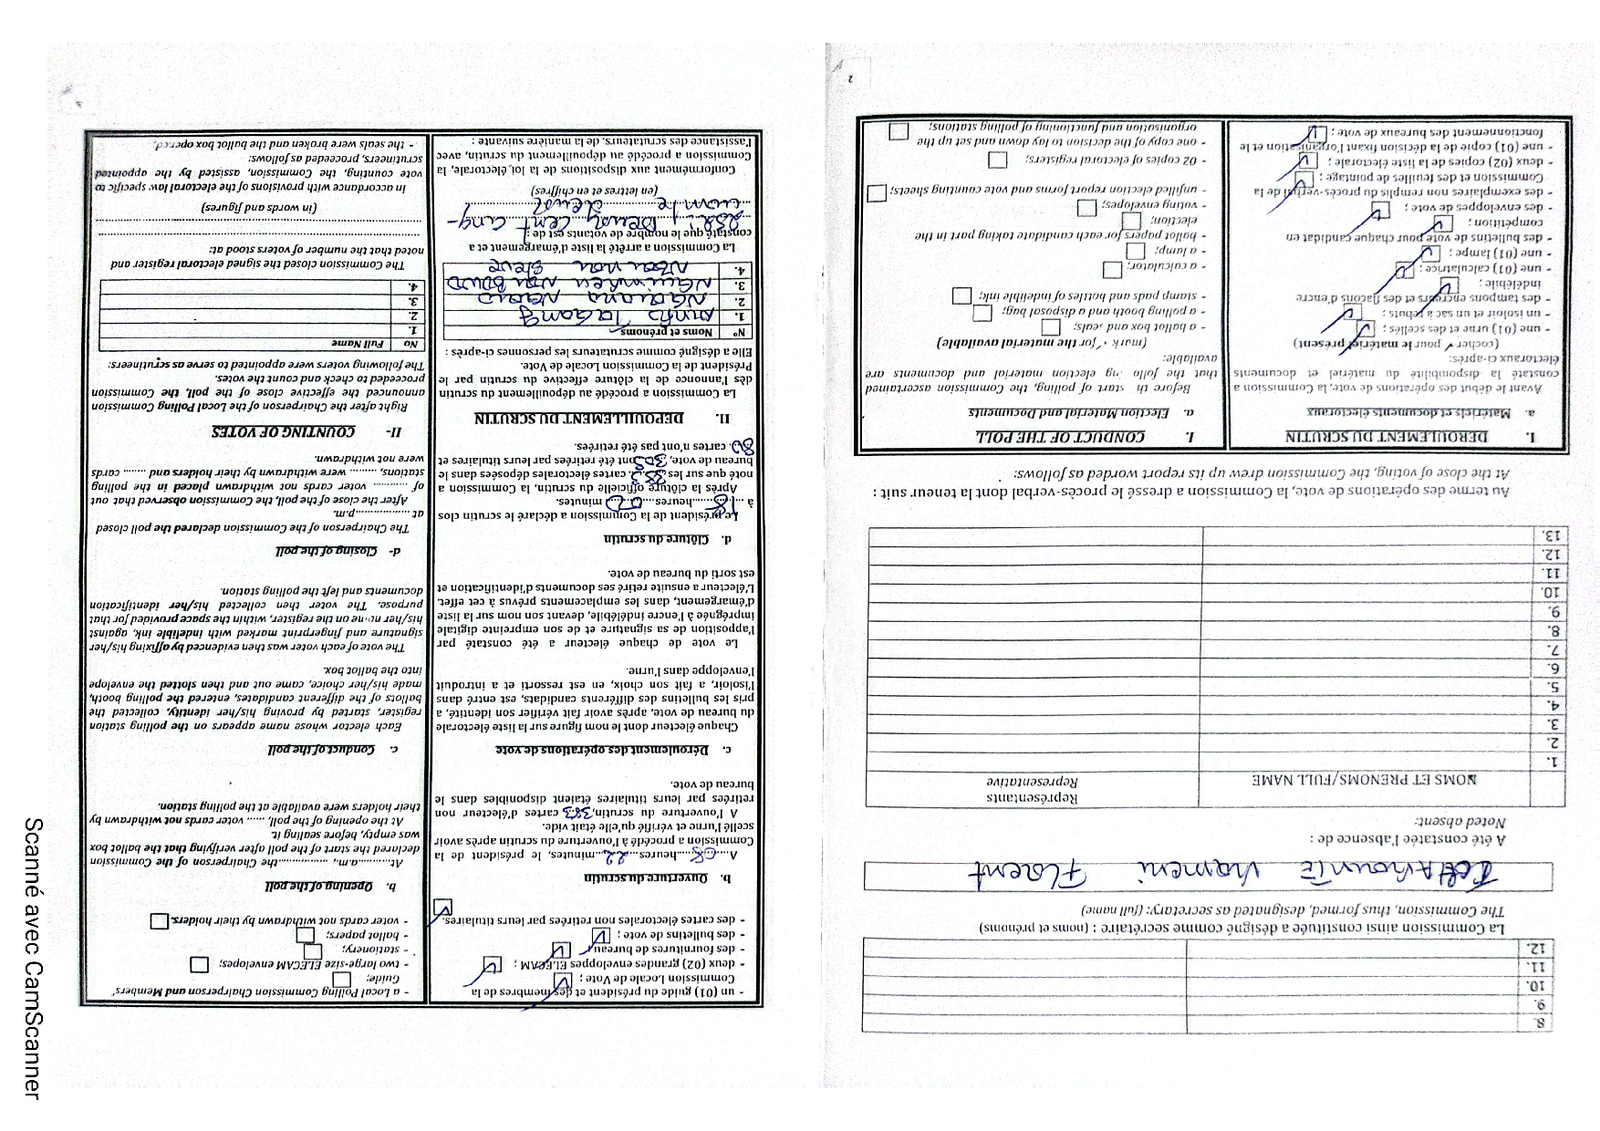 8.
9.
10.
11.
12.
La Commission ainsi constituée a désigné comme secrétaire : (noms et prénoms)
The Commission, thus formed, designated as secretary: (full name)
A été constatée l'absence de :
Noted absent:
NOMS ET PRENOMS/FULL NAME
Représentants
Representative
1.
2.
3.
4.
5.
6.
7.
8.
9.
10.
11.
12.
13.
Au terme des opérations de vote, la Commission a dressé le procès-verbal dont la teneur suit :
At the close of voting, the Commission drew up its report worded as follows:
I. DEROULEMENT DU SCRUTIN
a. Matériels et documents électoraux
Avant le début des opérations de vote, la Commission a
constaté la disponibilité du matériel et documents
électoraux ci-après:
(cocher ✓ pour le matériel présent)
- une (01) urne et des scellés ;
- un isoloir et un sac à rebuts ;
- des tampons encreurs et des flacons d'encre
indélébile ;
- une (01) calculatrice ;
- une (01) lampe ;
- des bulletins de vote pour chaque candidat en
compétition ;
- des enveloppes de vote ;
- des exemplaires non remplis du procès-verbal de la
Commission et des feuilles de pointage ;
- deux (02) copies de la liste électorale ;
- une (01) copie de la décision fixant l'organisation et le
fonctionnement des bureaux de vote ;
I. CONDUCT OF THE POLL
a. Election Material and Documents
Before th start of polling, the Commission ascertained
that the follo ng election material and documents are
available:
(mark ✓ for the material available)
- a ballot box and seals;
- a polling booth and a disposal bag;
- stamp pads and bottles of indelible ink;
- a calculator;
- a lamp;
- ballot papers for each candidate taking part in the
election;
- voting envelopes;
- unfilled election report forms and vote counting sheets;
- 02 copies of electoral registers;
- one copy of the decision to lay down and set up the
organisation and functioning of polling stations;
2
- un (01) guide du président et des membres de la
Commission Locale de Vote ;
- deux (02) grandes enveloppes ELECAM ;
- des fournitures de bureau ;
- des bulletins de vote ;
- des cartes électorales non retirées par leurs titulaires.
b. Ouverture du scrutin
A 08 heures 22 minutes, le président de la
Commission a procédé à l'ouverture du scrutin après avoir
scellé l'urne et vérifié qu'elle était vide.
A l'ouverture du scrutin, 383 cartes d'électeur non
retirées par leurs titulaires étaient disponibles dans le
bureau de vote.
c. Déroulement des opérations de vote
Chaque électeur dont le nom figure sur la liste électorale
du bureau de vote, après avoir fait vérifier son identité, a
pris les bulletins des différents candidats, est entré dans
l'isoloir, a fait son choix, en est ressorti et a introduit
l'enveloppe dans l'urne.
Le vote de chaque électeur a été constaté par
l'apposition de sa signature et de son empreinte digitale
imprégnée à l'encre indélébile, devant son nom sur la liste
d'émargement, dans les emplacements prévus à cet effet.
L'électeur a ensuite retiré ses documents d'identification et
est sorti du bureau de vote.
d. Clôture du scrutin
Le président de la Commission a déclaré le scrutin clos
à 18 heures 00 minutes.
Après la clôture officielle du scrutin, la Commission a
noté que sur les 383 cartes électorales déposées dans le
bureau de vote, 303 ont été retirées par leurs titulaires et
80 cartes n'ont pas été retirées.
II. DEPOUILLEMENT DU SCRUTIN
La Commission a procédé au dépouillement du scrutin
dès l'annonce de la clôture effective du scrutin par le
Président de la Commission Locale de Vote.
Elle a désigné comme scrutateurs les personnes ci-après :
N° Noms et prénoms
1.
2.
3.
4.
La Commission a arrêté la liste d'émargement et a
constaté que le nombre de votants est de :
252 Deux cent cinq-
uante deux
(en lettres et en chiffres)
Conformément aux dispositions de la loi électorale, la
Commission a procédé au dépouillement du scrutin, avec
l'assistance des scrutateurs, de la manière suivante :
- a Local Polling Commission Chairperson and Members'
Guide;
- two large-size ELECAM envelopes;
- stationery;
- ballot papers;
- voter cards not withdrawn by their holders.
b. Opening of the poll
At..........a.m., ...............the Chairperson of the Commission
declared the start of the poll after verifying that the ballot box
was empty, before sealing it.
At the opening of the poll, ...... voter cards not withdrawn by
their holders were available at the polling station.
c. Conduct of the poll
Each elector whose name appears on the polling station
register, started by proving his/her identity, collected the
ballots of the different candidates, entered the polling booth,
made his/her choice, came out and then slotted the envelope
into the ballot box.
The vote of each voter was then evidenced by affixing his/her
signature and fingerprint marked with indelible ink, against
his/her name on the register, within the space provided for that
purpose. The voter then collected his/her identification
documents and left the polling station.
d- Closing of the poll
The Chairperson of the Commission declared the poll closed
at ..................p.m.
After the close of the poll, the Commission observed that out
of ......... voter cards not withdrawn placed in the polling
stations, ......... were withdrawn by their holders and ....... cards
were not withdrawn.
II- COUNTING OF VOTES
Right after the Chairperson of the Local Polling Commission
announced the effective close of the poll, the Commission
proceeded to check and count the votes.
The following voters were appointed to serve as scrutineers:
No Full Name
1.
2.
3.
4.
The Commission closed the signed electoral register and
noted that the number of voters stood at:
(in words and figures)
In accordance with provisions of the electoral law specific to
vote counting, the Commission, assisted by the appointed
scrutineers, proceeded as follows:
- the seals were broken and the ballot box opened.
Scanné avec CamScanner